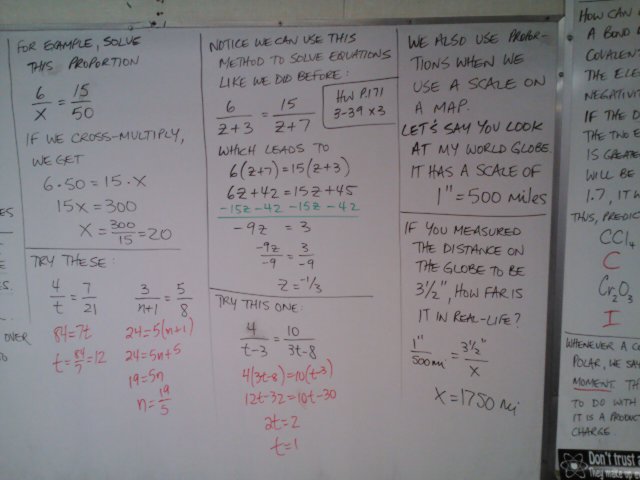 FOR EXAMPLE, SOLVE
THIS PROPORTION
6/x = 15/50
IF WE CROSS-MULTIPLY,
WE GET
6·50 = 15·x
15x = 300
x = 300/15 = 20
TRY THESE:
4/t = 7/21
84 = 7t
t = 84/7 = 12
3/n+1 = 5/8
24 = 5(n+1)
24 = 5n+5
19 = 5n
n = 19/5
NOTICE WE CAN USE THIS
METHOD TO SOLVE EQUATIONS
LIKE WE DID BEFORE:
6/z+3 = 15/z+7
HW P.171
3-39 x3
WHICH LEADS TO
6(z+7) = 15(z+3)
6z+42 = 15z+45
-15z-42 -15z-42
-9z = 3
-9z/-9 = 3/-9
z = -1/3
TRY THIS ONE:
4/t-3 = 10/3t-8
4(3t-8) = 10(t-3)
12t-32 = 10t-30
2t = 2
t = 1
WE ALSO USE PROPOR-
TIONS WHEN WE
USE A SCALE ON
A MAP.
LET'S SAY YOU LOOK
AT MY WORLD GLOBE.
IT HAS A SCALE OF
1" = 500 miles
IF YOU MEASURED
THE DISTANCE ON
THE GLOBE TO BE
3½", HOW FAR IS
IT IN REAL-LIFE?
1"/500mi = 3½"/x
x = 1750 mi
ES
E
S.
OVER
HOW CAN
A BOND
COVALEN
THE ELE
NEGATIVI
IF THE D
THE TWO E
IS GREATE
WILL BE
1.7, IT W
THUS, PREDIC
CCl4
C
Cr2O3
I
WHENEVER A CO
POLAR, WE SA
MOMENT. TH
TO DO WITH
IT IS A PRODUC
CHARGE
Don't trust a
They make up